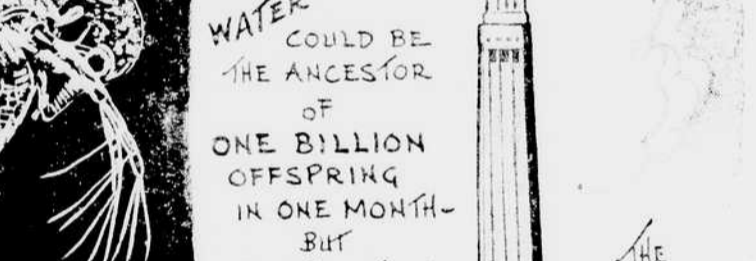 WATER
COULD BE
THE ANCESTOR
OF
ONE BILLION
OFFSPRING
IN ONE MONTH-
BUT
THE